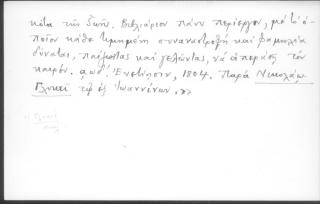 κατα τῆς ζωῆς. Βιβλιάριον πάνυ περίεργον, μὲ τὸ ὁ-
ποῖον κάθε τιμημένη συναναστροφὴ καὶ φαμιλία
δύναται, παίζωντας καὶ γελῶντας, νὰ ἀπεράσῃ τὸν
καιρόν. αωδ'. Ἐνετίῃσιν, 1804. Παρὰ Νικολάῳ
Γλυκεῖ τῷ ἐξ Ἰωαννίνων. »